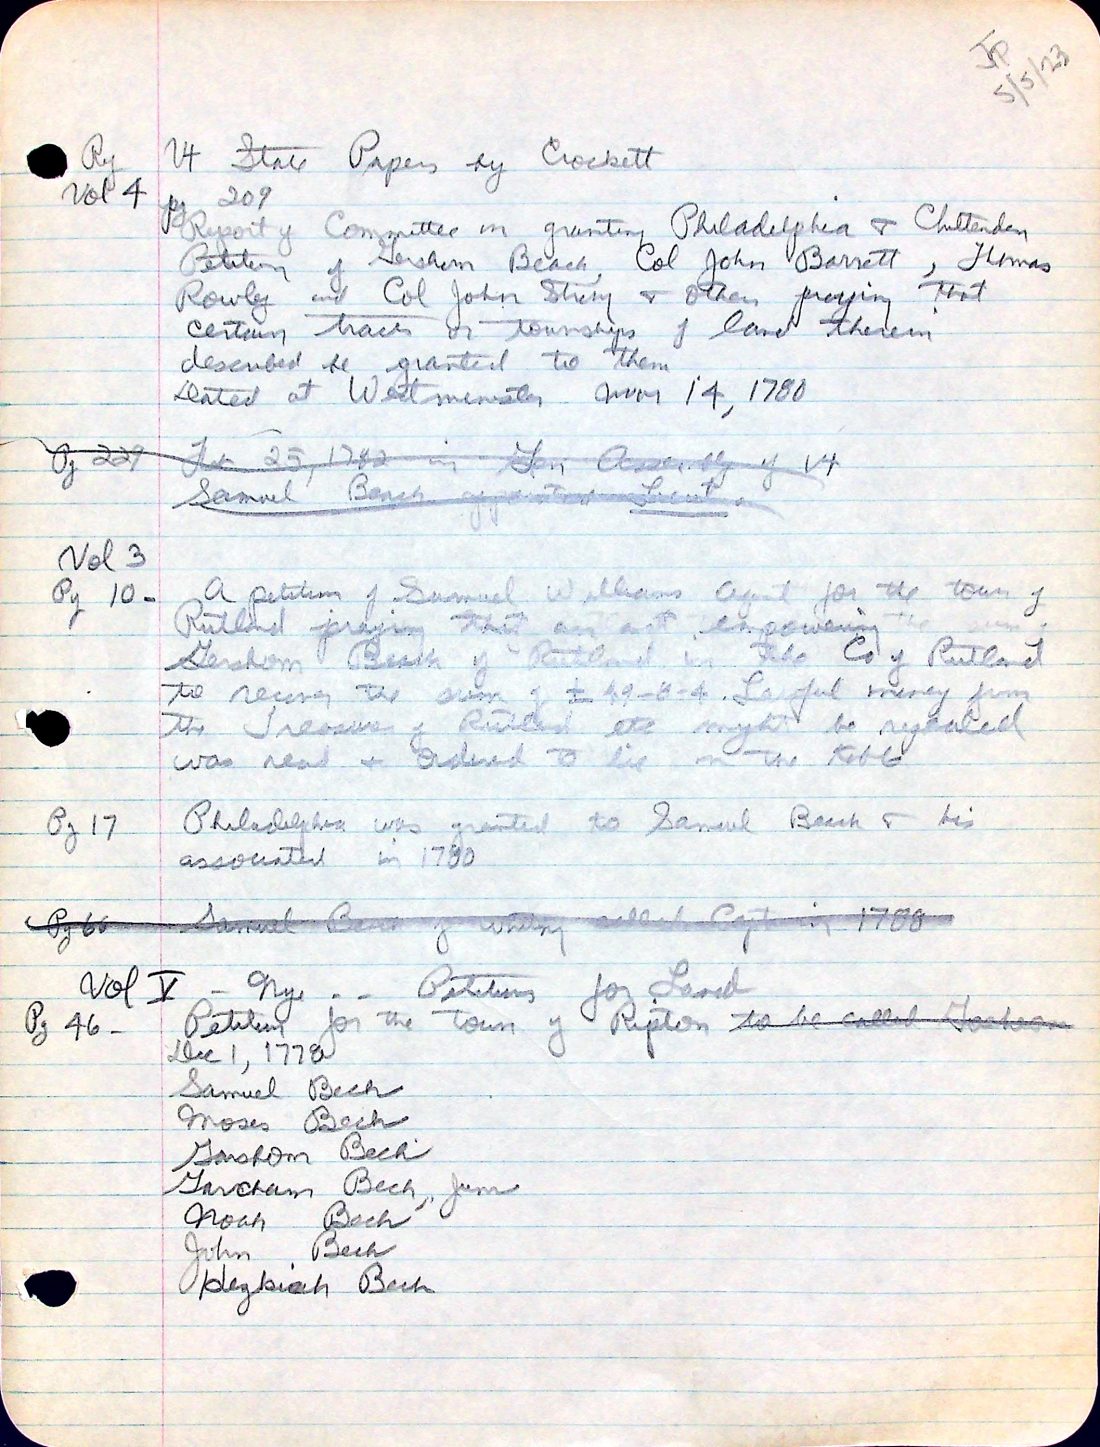 JP
5/5/23
Vt State Papers by Crockett
Vol 4 pg 209
Report of Committee on granting Philadelphia & Chittenden
Petition of Gershom Beach, Col John Barrett, Thomas
Rowley and Col John Strong & others praying that
certain tracts or townships of land therein
described be granted to them
Dated at Westminster Nov 14, 1780
Pg 229 Feb 25, 1782 in Gen Assembly of Vt
Samuel Beach appointed Lieut.
Vol 3
Pg 10- A petition of Samuel Williams agent for the town of
Rutland praying that an act empowering the
Gershom Beach of Rutland in the Co of Rutland
to recover the sum of £ 49-8-4 Lawful money from
the Treasurer of Rutland etc might be repealed
was read & ordered to lie on the table
Pg 17 Philadelphia was granted to Samuel Beach & his
associated in 1780
Pg 66 Samuel Beach of Whiting called Capt in 1788
Vol V - Nye -- Petitions for Land
Pg 46- Petition for the town of Ripton to be called
Dec 1, 1778
Samuel Bech
Moses Bech
Garshom Bech
Garcham Bech, Junr
Noah Bech
John Bech
Hezkiah Bech